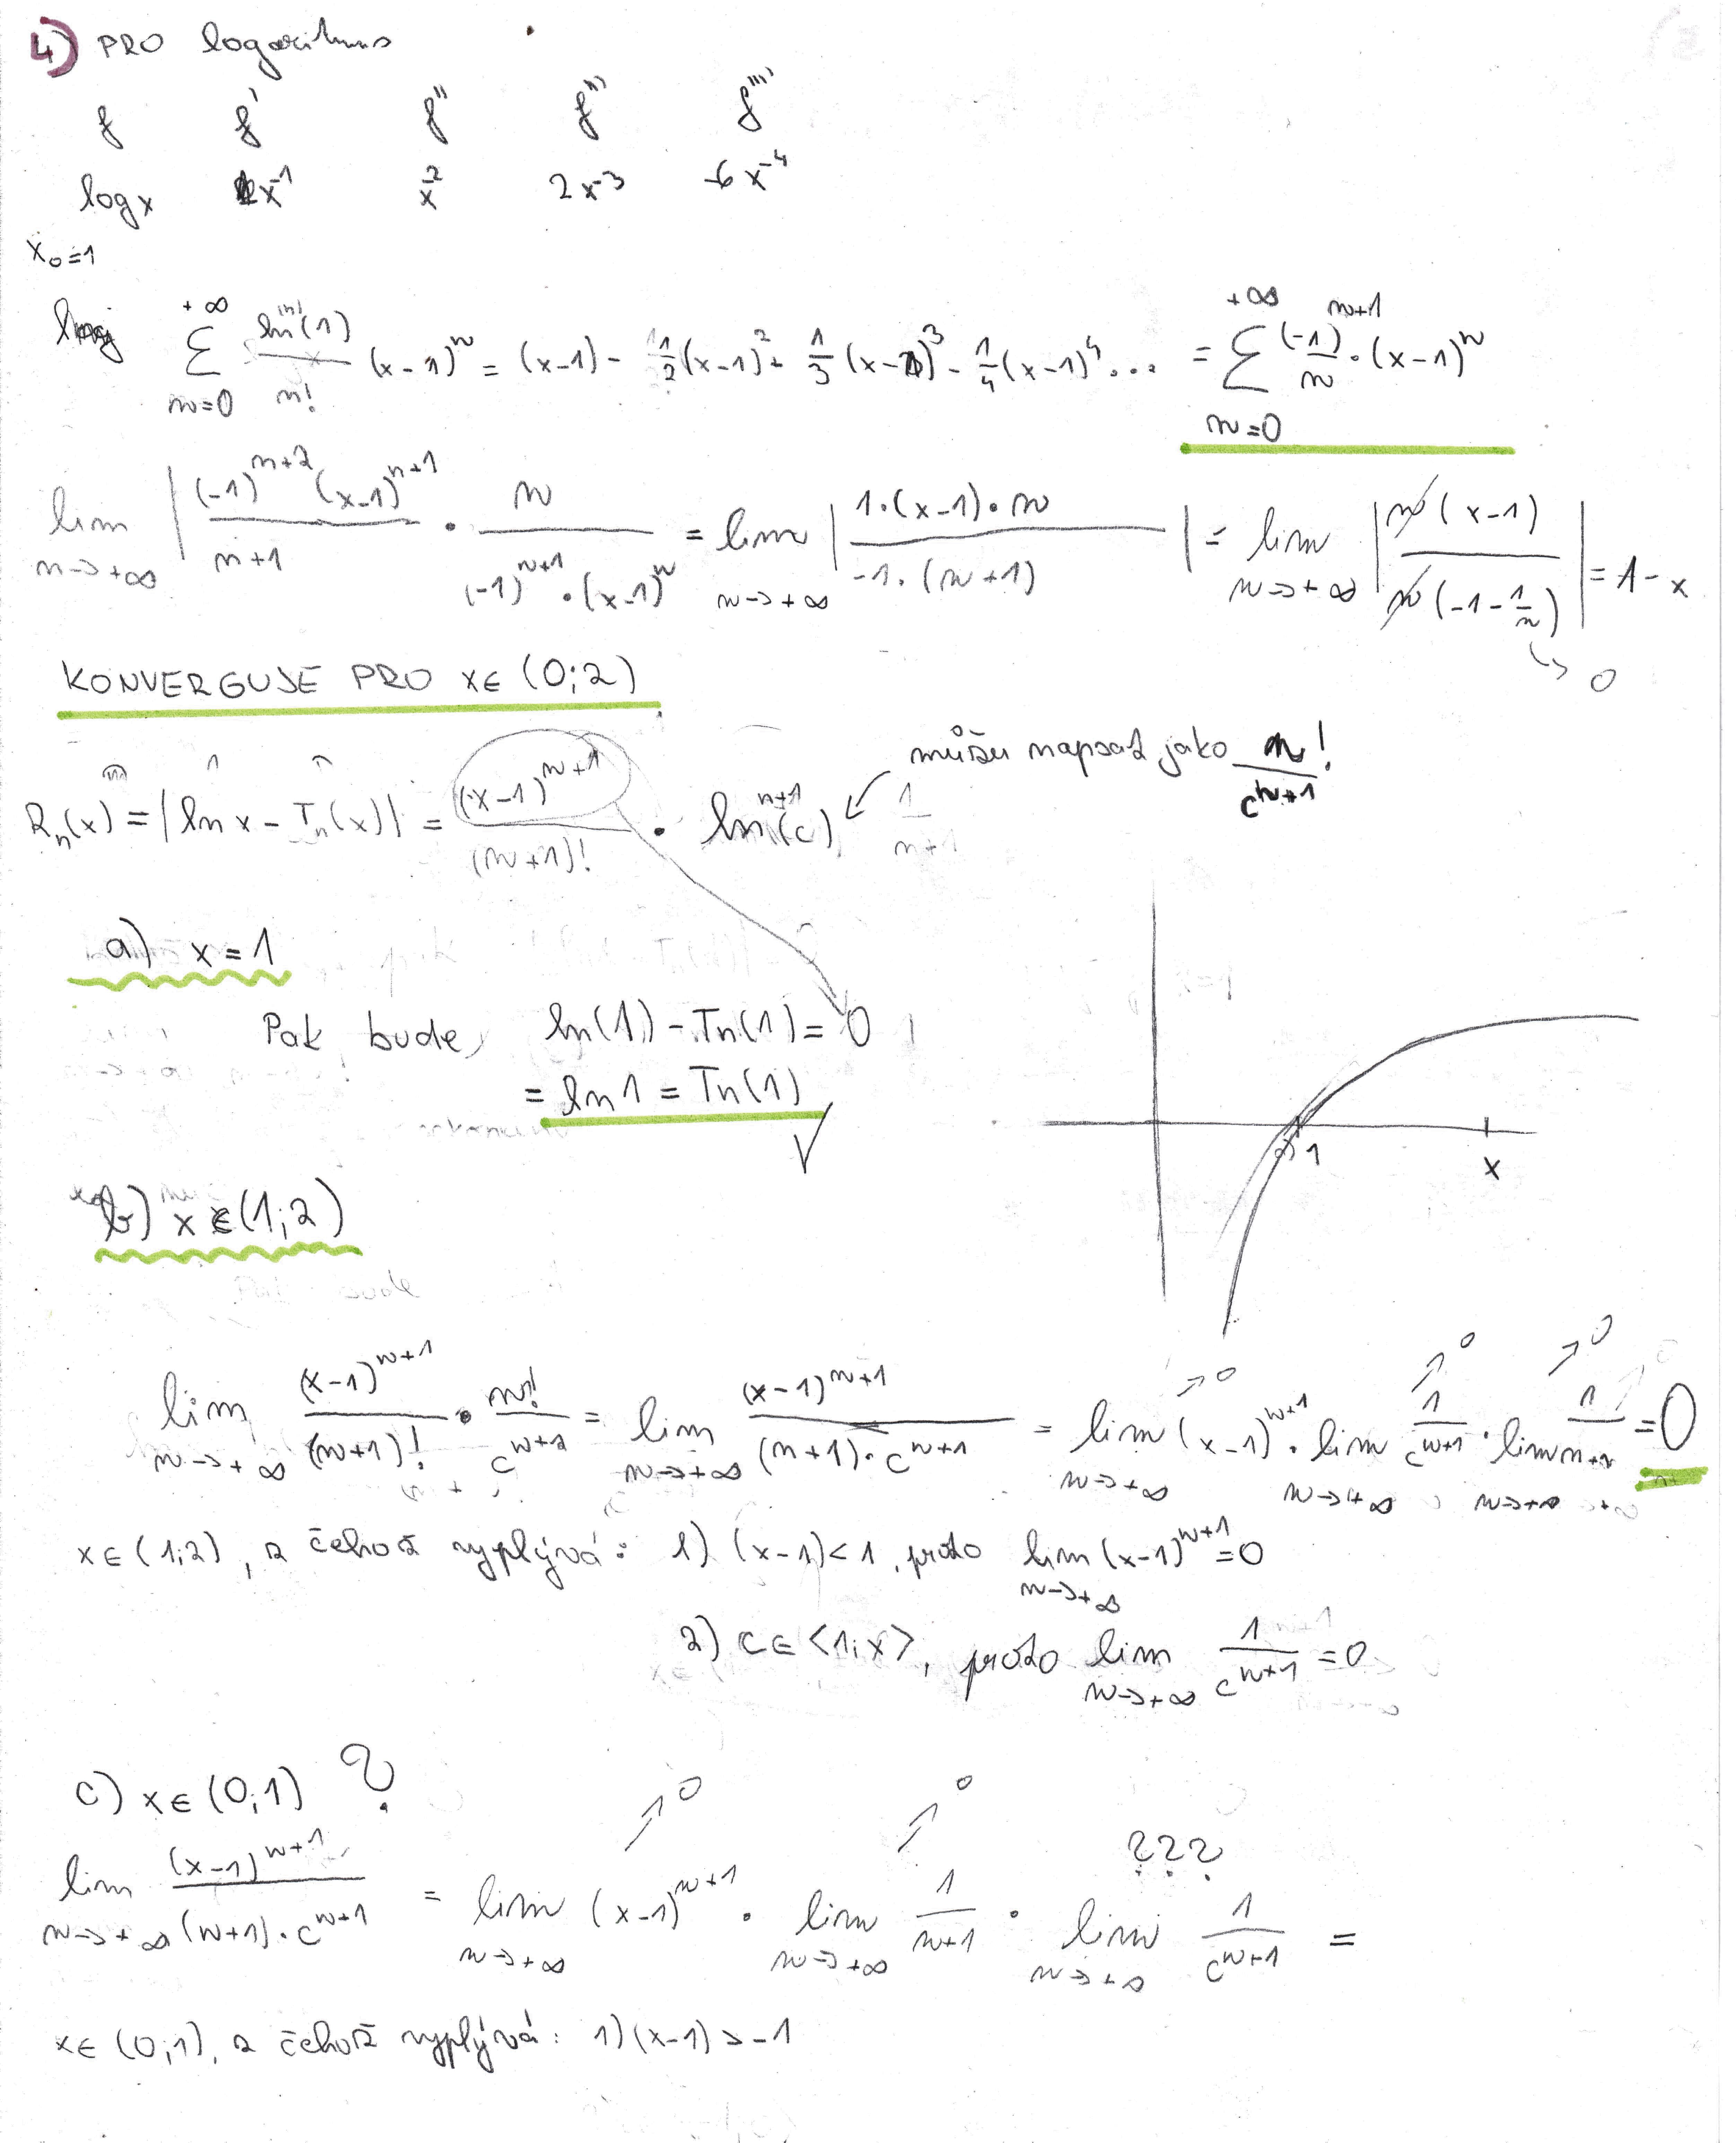 4) PRO logaritmus
f f' f'' f''' f''''
log x x⁻¹ x⁻² 2x⁻³ -6x⁻⁴
x₀=1
+∞ ∑ n=0 ln⁽ⁿ⁾(1) / n! (x-1)ⁿ = (x-1) - 1/2 (x-1)² + 1/3 (x-1)³ - 1/4 (x-1)⁴ ... = +∞ ∑ n=0 (-1)ⁿ⁺¹/n · (x-1)ⁿ
lim n→+∞ | (-1)ⁿ⁺² (x-1)ⁿ⁺¹ / n+1 · n / (-1)ⁿ⁺¹ · (x-1)ⁿ = lim n→+∞ | 1·(x-1)·n / -1·(n+1) | = lim n→+∞ | n(x-1) / n(-1-1/n) | = 1-x
↳ 0
KONVERGUJE PRO x∈(0;2)
můžu napsat jako n! / cⁿ⁺¹
Rₙ(x) = |ln x - Tₙ(x)| = (x-1)ⁿ⁺¹ / (n+1)! · lnⁿ⁺¹(c) 1 / n+1
a) x=1
Pak bude, ln(1) - Tn(1) = 0
= ln 1 = Tn(1) ✓
1 x
b) x∈(1;2)
Pak bude
lim n→+∞ (x-1)ⁿ⁺¹ / (n+1)! · n! / cⁿ⁺¹ = lim n→+∞ (x-1)ⁿ⁺¹ / (n+1)·cⁿ⁺¹ = lim n→+∞ (x-1)ⁿ⁺¹ →0 · lim n→+∞ 1/cⁿ⁺¹ →0 · lim n→+∞ 1/n+1 →0 = 0
x∈(1;2), z čehož vyplývá: 1) (x-1)<1, proto lim n→+∞ (x-1)ⁿ⁺¹=0
2) c∈<1;x>, proto lim n→+∞ 1/cⁿ⁺¹ = 0
c) x∈(0;1) ?
lim n→+∞ (x-1)ⁿ⁺¹ / (n+1)·cⁿ⁺¹ = lim n→+∞ (x-1)ⁿ⁺¹ →0 · lim n→+∞ 1/n+1 →0 · lim n→+∞ 1/cⁿ⁺¹ ??? =
x∈(0;1), z čehož vyplývá: 1) (x-1)>-1